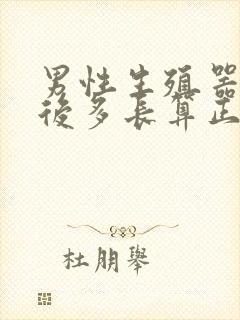 男性生殖器
後多長算正
杜朋舉